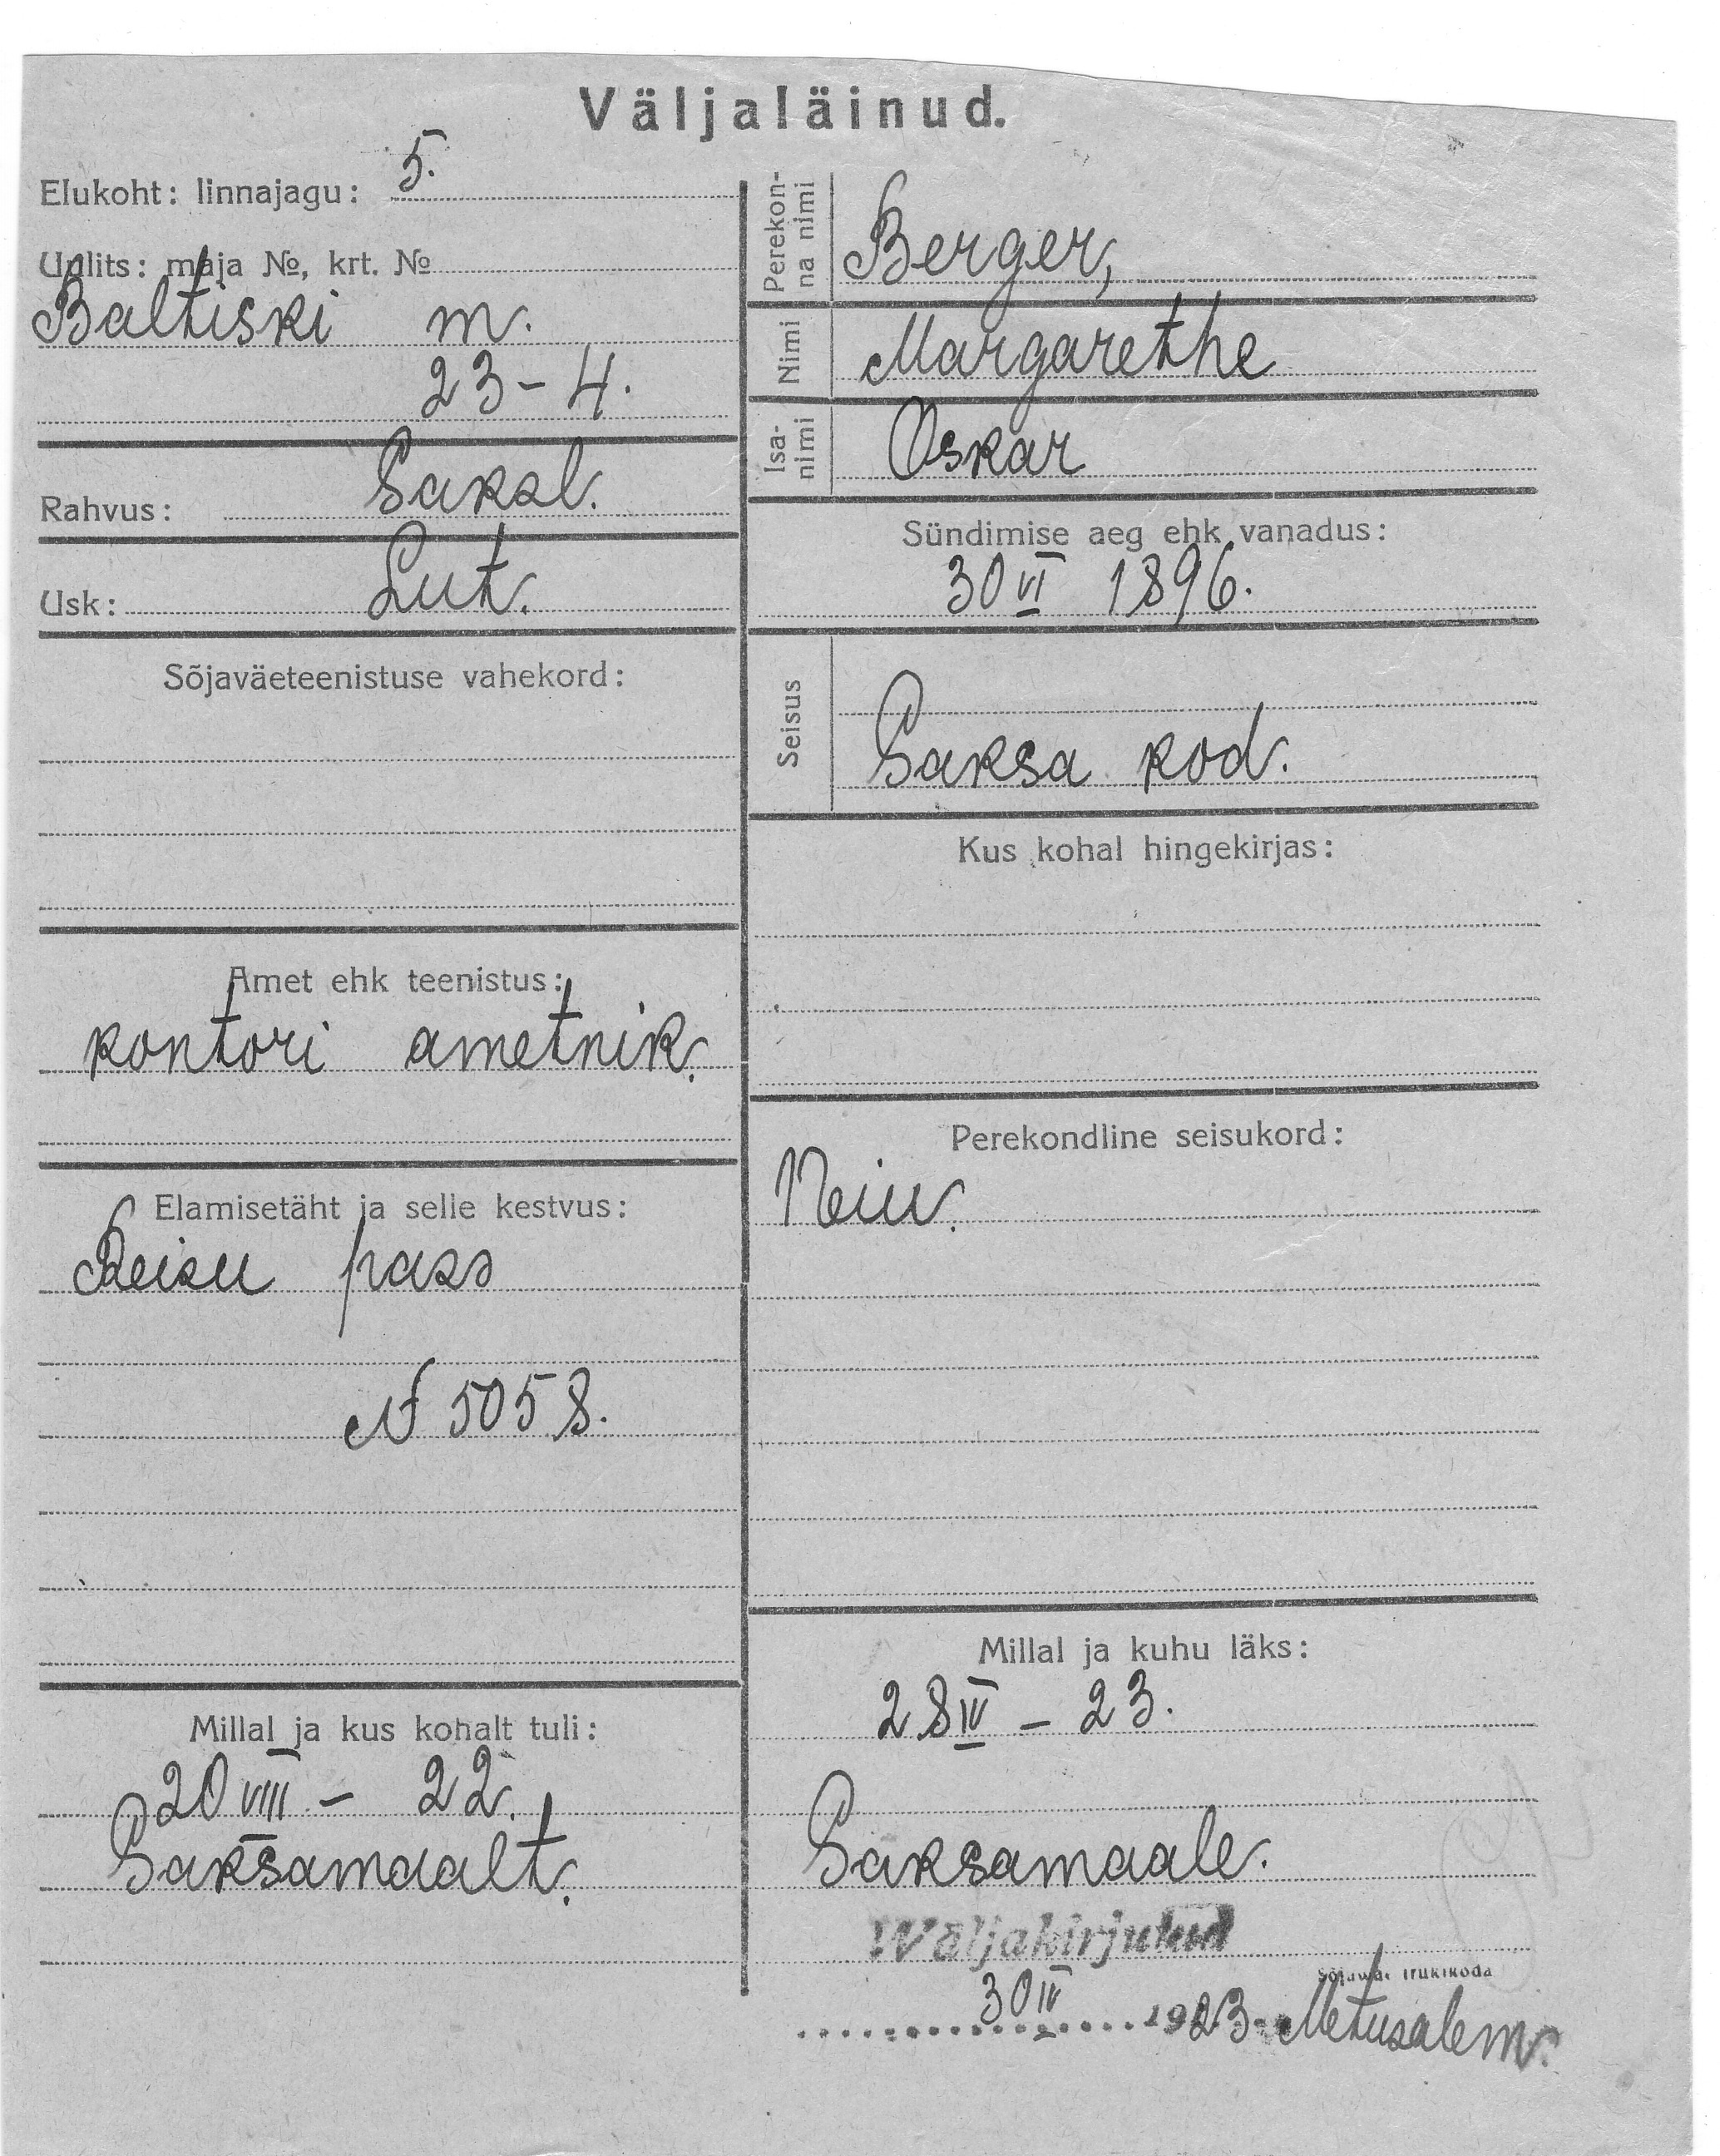 Väljaläinud.
Elukoht: linnajagu: 5.
Uulits: maja №, krt. №
Baltiski m.
23 - 4.
Rahvus: Saksl.
Usk: Lut.
Sõjaväeteenistuse vahekord:
Amet ehk teenistus:
kontori ametnik.
Elamisetäht ja selle kestvus:
Reisu pass
№ 5058.
Millal ja kus kohalt tuli:
20 VIII - 22.
Saksamaalt.
Perekon-
na nimi
Berger,
Nimi
Margarethe
Isa-
nimi
Oskar
Sündimise aeg ehk vanadus:
30 VI 1896.
Seisus
Saksa kod.
Kus kohal hingekirjas:
Perekondline seisukord:
Neiu.
Millal ja kuhu läks:
28 IV - 23.
Saksamaale.
Wäljakirjutud
Sõjawäe trükikoda
30 IV 1923. Metusalem.